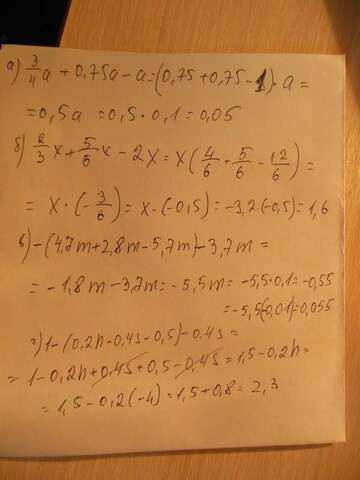 а) 3/4 a + 0,75a - a = (0,75 + 0,75 - 1) · a =
= 0,5a = 0,5 · 0,1 = 0,05
б) 2/3 x + 5/6 x - 2x = x (4/6 + 5/6 - 12/6) =
= x · (-3/6) = x · (-0,5) = -3,2 · (-0,5) = 1,6
в) -(4,7m + 2,8m - 5,7m) - 3,7m =
= -1,8m - 3,7m = -5,5m = -5,5 · 0,1 = -0,55
= -5,5(-0,01) = 0,055
г) 1 - (0,2n - 0,45 - 0,5) - 0,45 =
= 1 - 0,2n + 0,45 + 0,5 - 0,45 = 1,5 - 0,2n =
= 1,5 - 0,2(-4) = 1,5 + 0,8 = 2,3